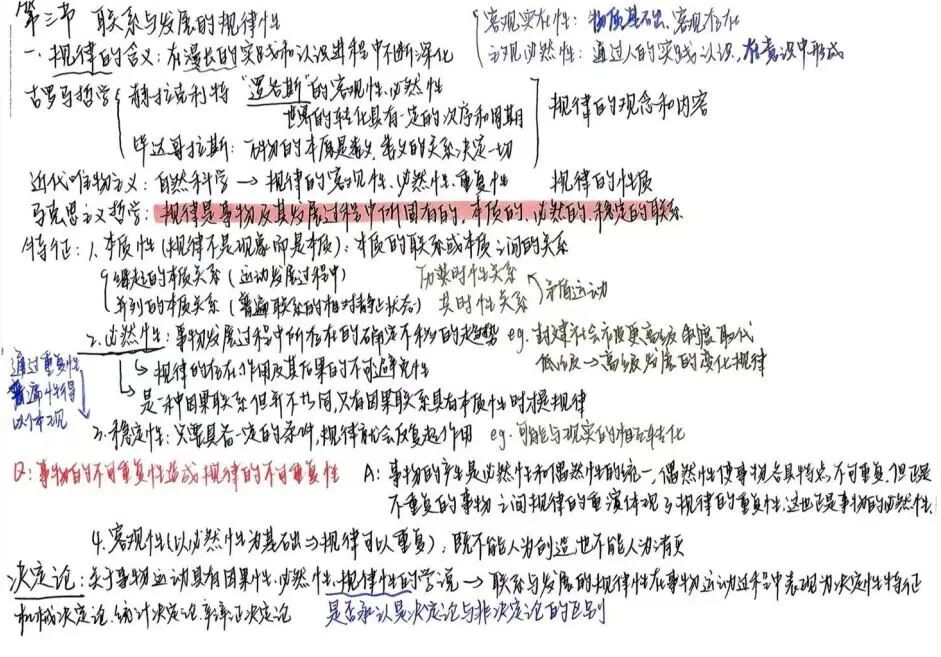 第三节 联系与发展的规律性
客观实在性：物质基础、客观存在
主观必然性：通过人的实践认识，在意识中形成
一、规律的含义：在漫长的实践和认识进程中不断深化
古罗马哲学 赫拉克利特 "逻各斯"的客观性、必然性
世界的转化具有一定的次序和周期
毕达哥拉斯：万物的本原是数，数的关系决定一切
规律的观念和内容
近代唯物主义：自然科学 → 规律的客观性、必然性、重复性 规律的性质
马克思主义哲学：规律是事物及其发展过程中所固有的、本质的、必然的、稳定的联系
特征：1. 本质性（规律不是现象而是本质）：本质的联系或本质之间的关系
继起的本质关系（运动发展过程中） 历时性关系
并列的本质关系（普遍联系的相对静止状态） 共时性关系
矛盾运动
2. 必然性：事物发展过程中所存在的确定不移的趋势 eg. 封建社会市度更高级制度取代
低级→高级发展的变化规律
↳ 规律的存在、作用及其后果的不可避免性
↳ 是一种因果联系但并不共同，只有因果联系具有本质性时才是规律
通过重复性
普遍性得
以体现
3. 稳定性：只要具备一定的条件，规律就会反复起作用 eg. 可能与现实的相互转化
Q：事物的不可重复性造成规律的不可重复性
A：事物的产生是必然性和偶然性的统一，偶然性使事物各具特点，不可重复，但正是
不重复的事物之间规律的重演体现了规律的重复性，这也正是事物的必然性。
4. 客观性（以必然性为基础⇒规律可以重复）：既不能人为创造也不能人为消灭
决定论：关于事物运动具有因果性、必然性、规律性的学说 → 联系与发展的规律性在事物运动过程中表现为决定性特征
机械决定论、统计决定论、辩证决定论 是否承认是决定论与非决定论的区别